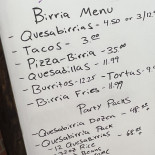 Birria Menu
Quesabirrias - 4.50 or 3/12
Tacos - 3.00
Pizza-Birria - 35.00
Quesabillas - 11.99
Burritos - 12.25 - Tortas - 9
Birria Fries - 11.99
Party Packs
Quesabirria Dozen - 48.00
Quesabirria Pack
12 Quesabirrias - 68.00
32oz Rice